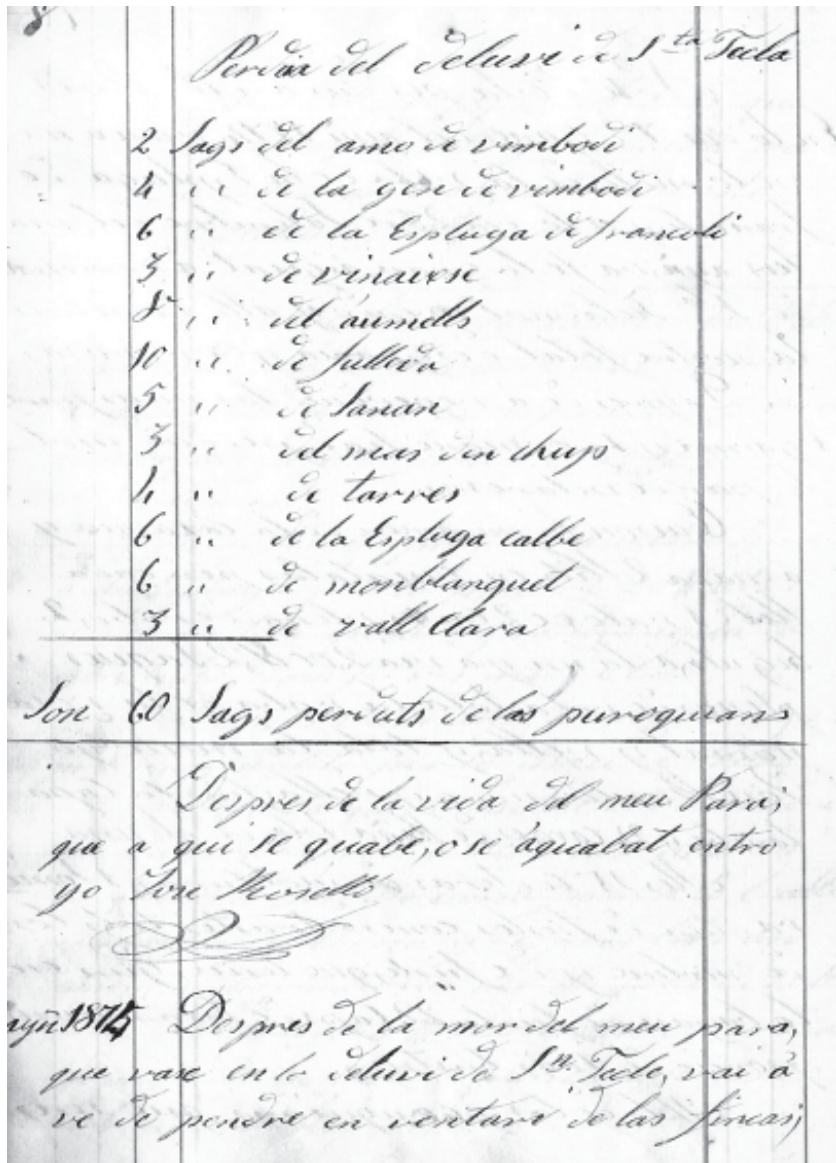 8
Perdua del deluvi de Sta Tecla
2 Sags del amo de vimbodi
4 " de la gen de vimbodi
6 " de la Espluga de francoli
3 " de vinaixse
8 " del aumells
10 " de fulleda
5 " de Sanan
3 " del mas den chup
4 " de tarres
6 " de la Espluga calbe
6 " de monblanquet
3 " de vall Clara
Son 60 Sags perduts de las puroquians
Despres de la vida del meu Para;
que a qui se quabe, o se aquabat entro
yo Jose Roselló
1875 Despres de la mor del meu para,
que vase en lo deluvi de Sta Tecle, vai á
ve de pendre en ventari de las fincas;